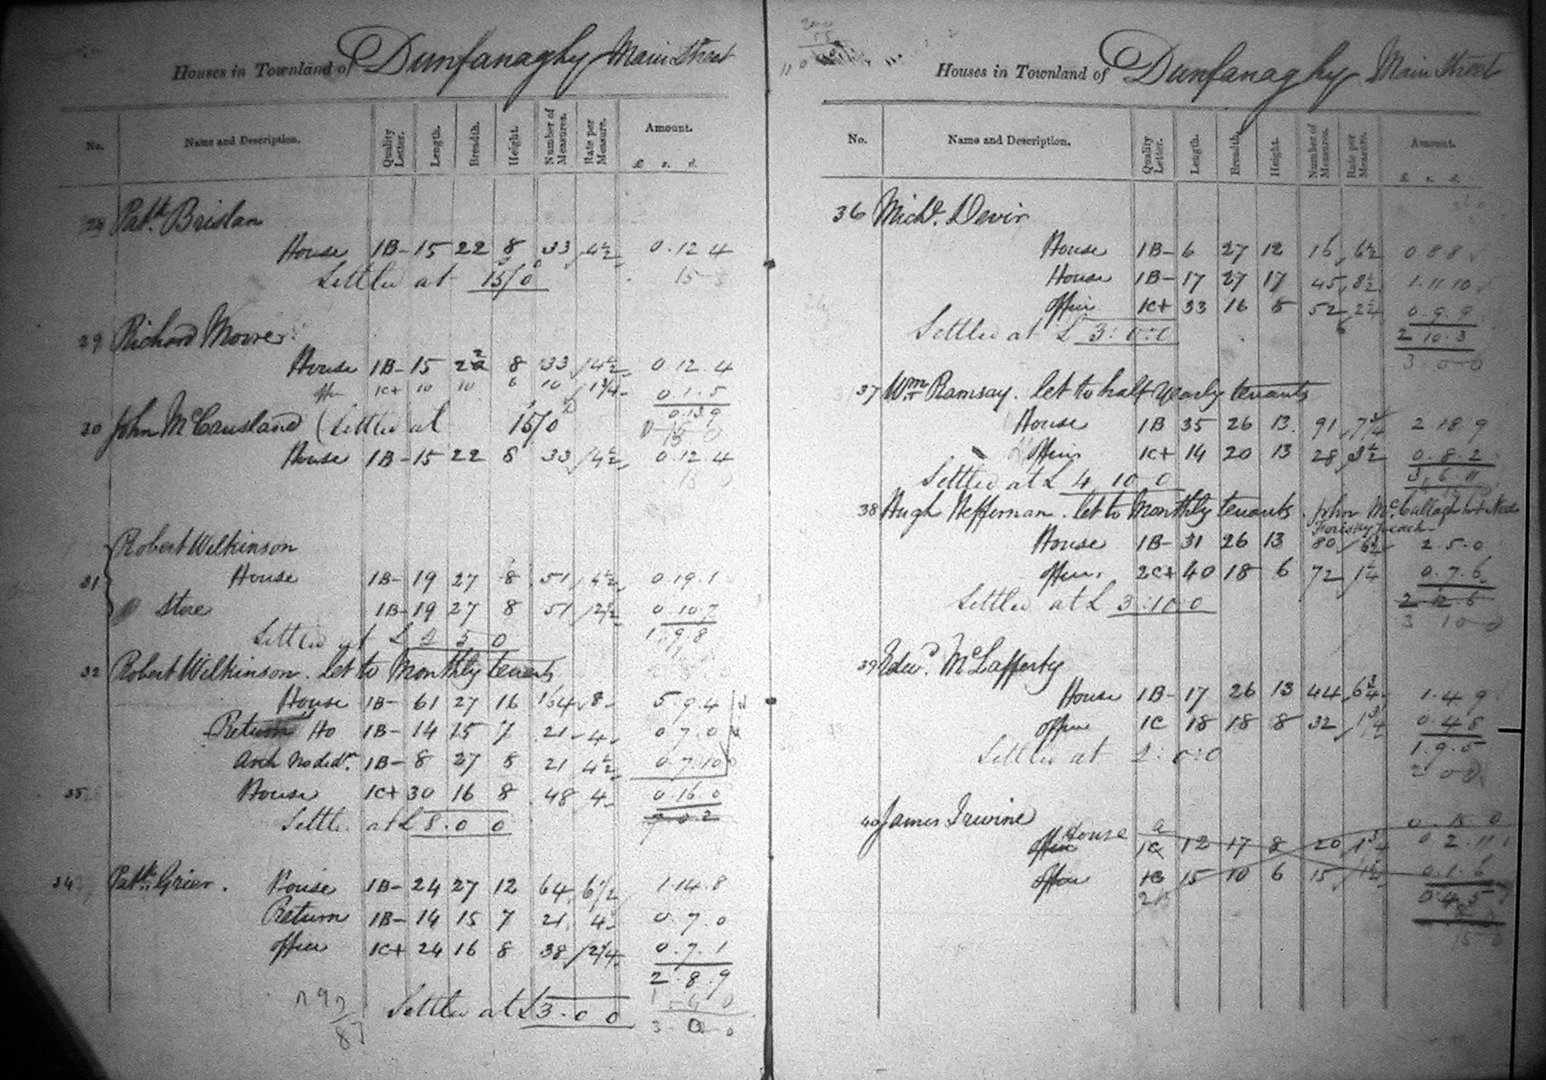 Houses in Townland of Dunfanaghy Main Street
No. Name and Description. Quality Letter. Length. Breadth. Height. Number of Measures. Rate per Measure. Amount. £ s. d.
28 Patk. Brislan
House 1B- 15 22 8 33 /4½ 0.12.4
Settled at 15/0
29 Richard Moore
House 1B- 15 22 8 33 /4½ 0.12.4
offi 1C+ 10 10 6 10 /1¾ 0.1.5
0.13.9
30 John McCausland (Settled at 15/0
House 1B- 15 22 8 33 /4½ 0.12.4
Robert Wilkinson
31 House 1B- 19 27 8 51 /4½ 0.19.1
Store 1B- 19 27 8 51 /2½ 0.10.7
1.9.8
Settled at £ 4 5 0
32 Robert Wilkinson. let to Monthly tenants
House 1B- 61 27 16 164 /8 5.9.4
Return Ho 1B- 14 15 7 21 /4 0.7.0
Arch No ded. 1B- 8 27 8 21 /4½ 0.7.10
35 House 1C+ 30 16 8 48 /4 0.16.0
Settled at £ 8.0 0
34 Patk. Grier. House 1B- 24 27 12 64 6½ 1.14.8
Return 1B- 14 15 7 21 4 0.7.0
office 1C+ 24 16 8 38 /2¼ 0.7.1
2.8.9
Settled at £3.0 0
3 0 0
Houses in Townland of Dunfanaghy Main Street
No. Name and Description. Quality Letter. Length. Breadth. Height. Number of Measures. Rate per Measure. Amount. £ s. d.
36 Michl. Devir
House 1B- 6 27 12 16 6½ 0 8 8
House 1B- 17 27 17 45 8½ 1.11.10
office 1C+ 33 16 8 52 /2¼ 0.9.9
Settled at £ 3:0:0 2 10.3
3 0 0
37 Wm. Ramsay. let to half yearly tenants
House 1B 35 26 13 91 7¾ 2.18.9
Office 1C+ 14 20 13 28 3½ 0.8.2
3.6.11
Settled at £ 4 10 0
38 Hugh Heffernan. let to Monthly tenants. John McCallagh
House 1B- 31 26 13 80 /6¾ 2.5.0
office 2C+ 40 18 6 72 1¼ 0.7.6
Settled at £ 3:10.0 2 12.6
3 10 0
39 Edwd. McLafferty
House 1B- 17 26 13 44 6¾ 1.4.9
office 1C 18 18 8 32 /1¾ 0.4.8
1.9.5
Settled at 2:0:0
2 0 0
40 James Irwine
House
office 1C 12 17 8 20 1¾ 0.2.11
office 15 10 6 15 0.1.6
0.4.5
15 0